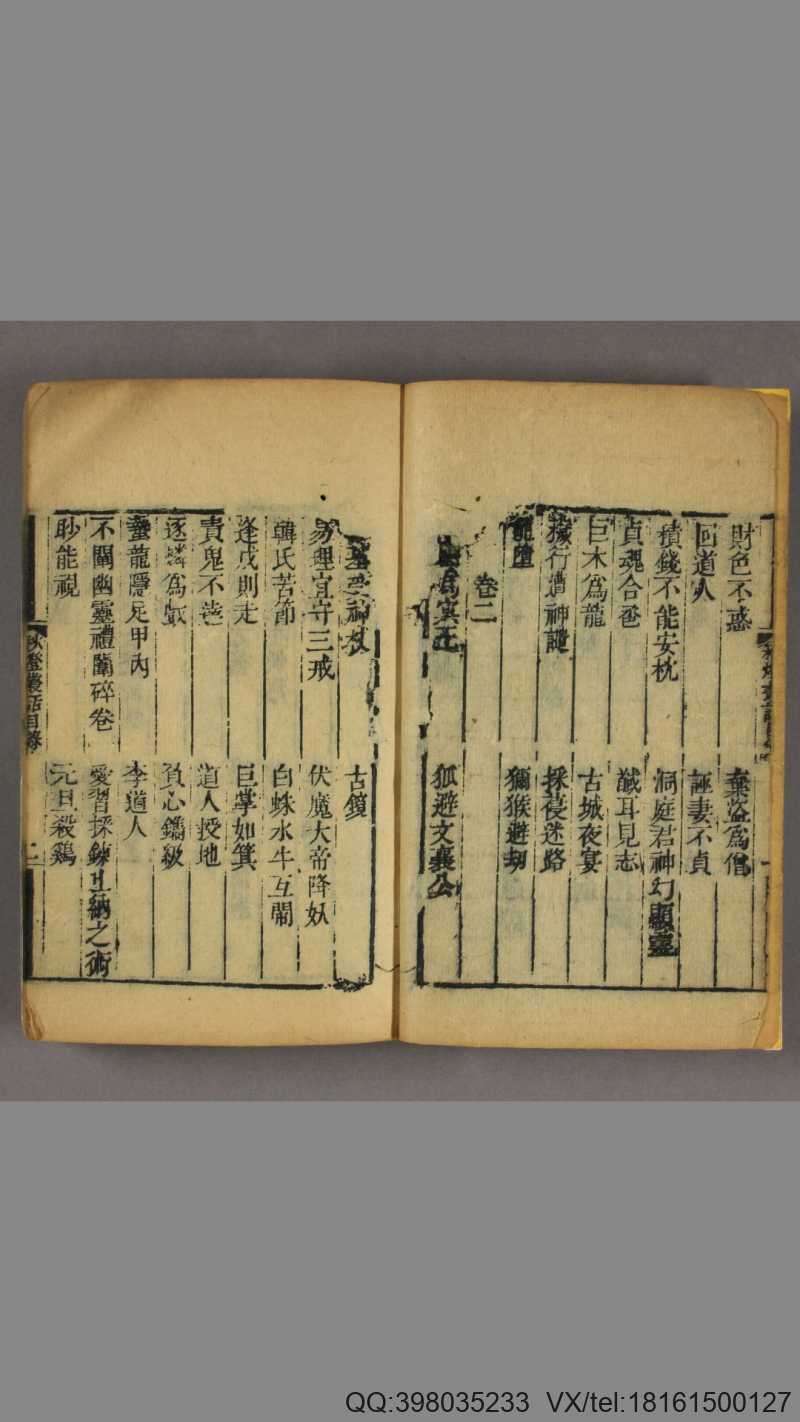 財色不惑
棄盗爲僧
回道人
誣妻不貞
積錢不能安枕
洞庭君神幻顯靈
貞魂合卺
馘耳見志
巨木爲龍
古城夜宴
穢行遭神譴
採薓迷路
龍墮
獮猴避刼
卷二
爲冥王
狐避文襄公
古鏡
易理宜守三戒
伏魔大帝降妖
韓氏苦節
白蛛水牛互鬭
逢戊則走
巨掌如箕
責鬼不恙
道人授地
逐燐爲
負心鐫級
蟄龍隱足甲內
李道人
不閙幽靈禮闈碎卷
愛習採之術
眇能視
元旦殺鷄
秋燈叢話目錄
二
QQ:398035233 VX/tel:18161500127